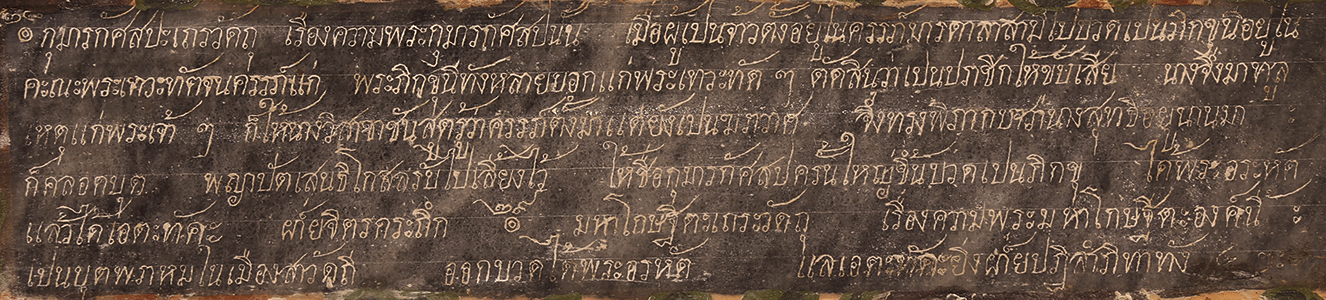 ๏ กุมารกัศสปะเถรวัดถุ เรื่องความพระกุมารกัศสปนั้น เมื่อผู้เปนจ้าวตั้งอยู่ในครรภ์มารดาลาสามีไปบวดเปนภิกขุนีอยู่ใน
คะณะพระเทวะทัตจนครรภ์แก่ พระภิกขุนีทังหลายบอกแก่พระเทวะทัด ๆ ตัดสีนว่าเปนปราชิกให้ขับเสีย นางจึ่งมาทูล
เหตุแก่พระเจ้า ๆ ก็ให้นางวิสาขาชันสูตรู้ว่าครรภ์ตั้งมาแต่ยังเปนฆะราวาศ จึ่งทรงพิภากษว่านางสุทธิอยู่นานมา
ก็คลอดบุต พญาปัตเสนธิโกสลรับไปเลี้ยงไว้ ให้ชื่อกุมารกัศสปครั้นใหญ่ขึ้นบวดเปนภิกขุ ได้พระอะระหัต
แล้วได้เอตะทัคะ ฝ่ายจิตรกะถึก ๏ มหาโกษฐิตะเถรวัดถุ เรื่องความพระมหาโกษฐิตะองค์นี้
เปนบุตพราหมในเมืองสาวัดถี ออกบวดได้พระอรหัต แลเอตะทัคะยิ่งฝ่ายปฏิสำภิทาทัง